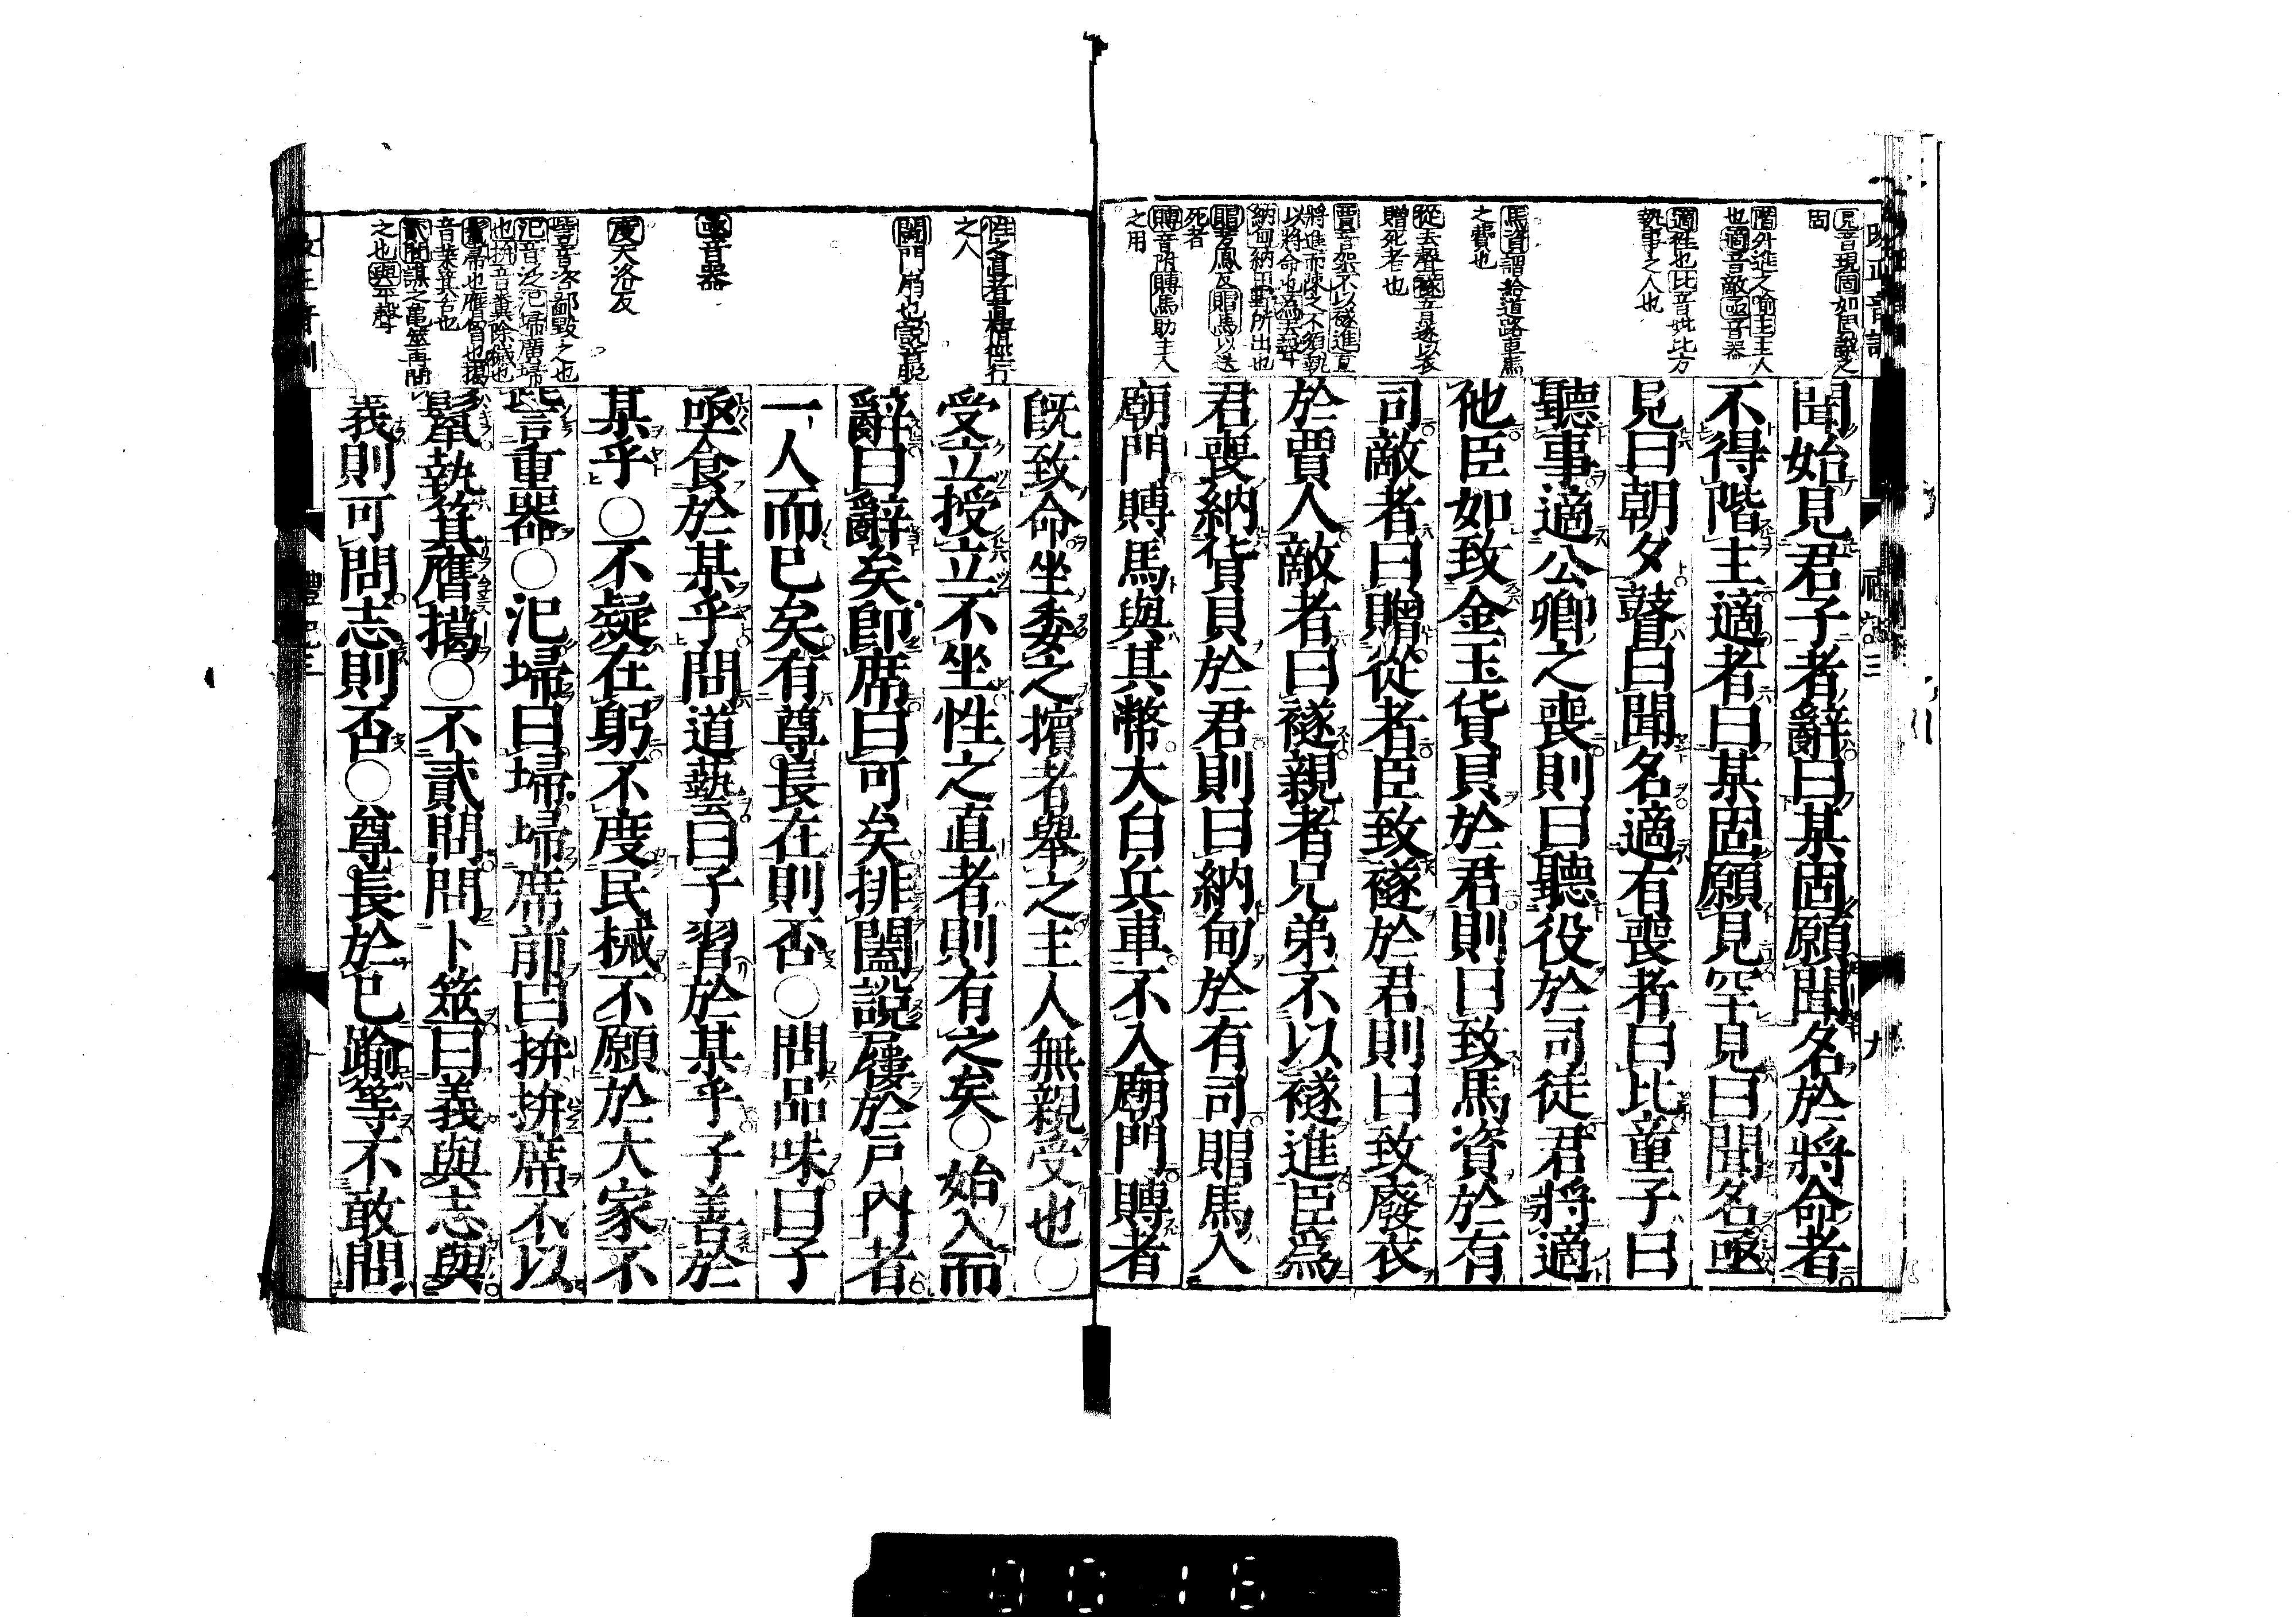 聞始見君子者辭曰某固願聞名於將命者
不得階主適者曰某固願見罕見曰聞名亟
見曰朝夕瞽曰聞名適有喪者曰比童子曰
聽事適公卿之喪則曰聽役於司徒君將適
他臣如致金玉貨貝於君則曰致馬資於有
司敵者曰贈從者臣致襚於君則曰致廢衣
於賈人敵者曰襚親者兄弟不以襚進臣爲
君喪納貨貝於君則曰納甸於有司賵馬入
廟門賻馬與其幣大白兵車不入廟門賻者
既致命坐委之擯者舉之主人無親受也○
受立授立不坐性之直者則有之矣○始入而
辭曰辭矣即席曰可矣排闔說屨於戶內者
一人而已矣有尊長在則否○問品味曰子
亟食於某乎問道藝曰子習於某乎子善於
某乎○不疑在躬不度民械不願於大家不
訾重器○氾埽曰埽埽席前曰拚拚席不以
鬣執箕膺擖○不貳問問卜筮曰義與志與
義則可問志則否○尊長於已踰等不敢問
見音現
固
階外進之喻主主人
也適音敵亟音器
適往也比音妣比方
執事之人也
馬資謂給道路車馬
之費也
從去聲襚音遂以衣
贈死者也
賈音架不以襚進直
將進而陳之不須執
以將命也爲去聲
納甸納田野所出也
賵芳鳳反賵馬以送
死者
賻音附賻馬助主人
之用
性之直者直情徑行
之人
闔門扇也說音脫
亟音器
度大洛反
訾音咨鄙毀之也
氾音泛氾埽廣埽
也拚音糞除穢也
鬣帚也膺胷也擖
音葉箕舌也
貳問謀之龜筮再問
之也與平聲
禮記三
九
十
0016